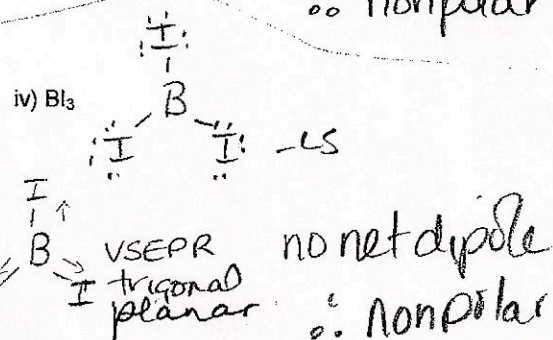 ∴ nonpolar
I
iv) BI₃
B
I I - LS
I
B
I
VSEPR
trigonal
planar
no net dipole
∴ nonpolar